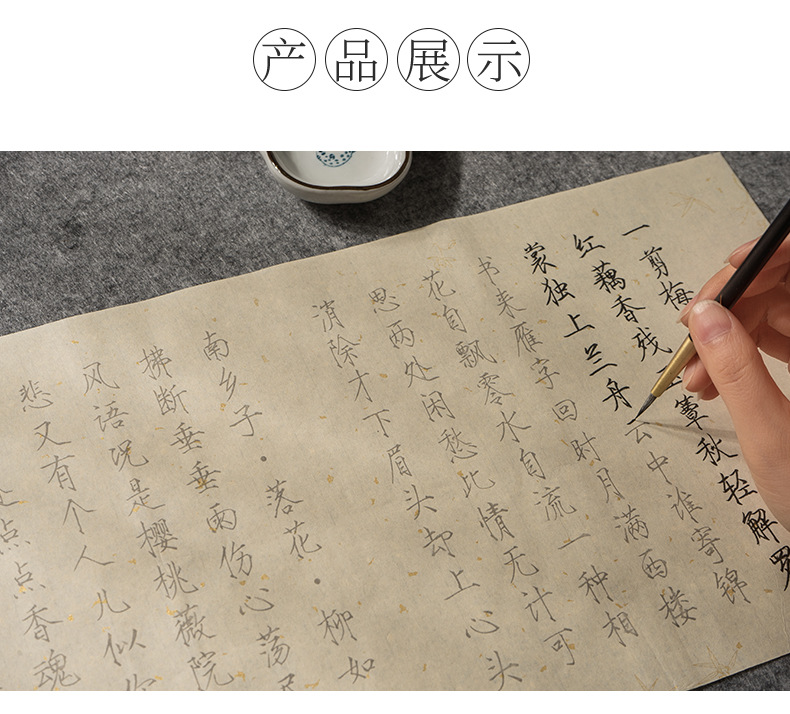 产品展示
一剪梅
红藕香残簟秋轻解罗
裳独上兰舟云中谁寄锦
书来雁字回时月满西楼
花自飘零水自流一种相
思两处闲愁此情无计可
消除才下眉头却上心头
南乡子·落花·柳如
拂断垂垂雨伤心荡
风语况是樱桃薇院
悲又有个人儿似你
点点香魂